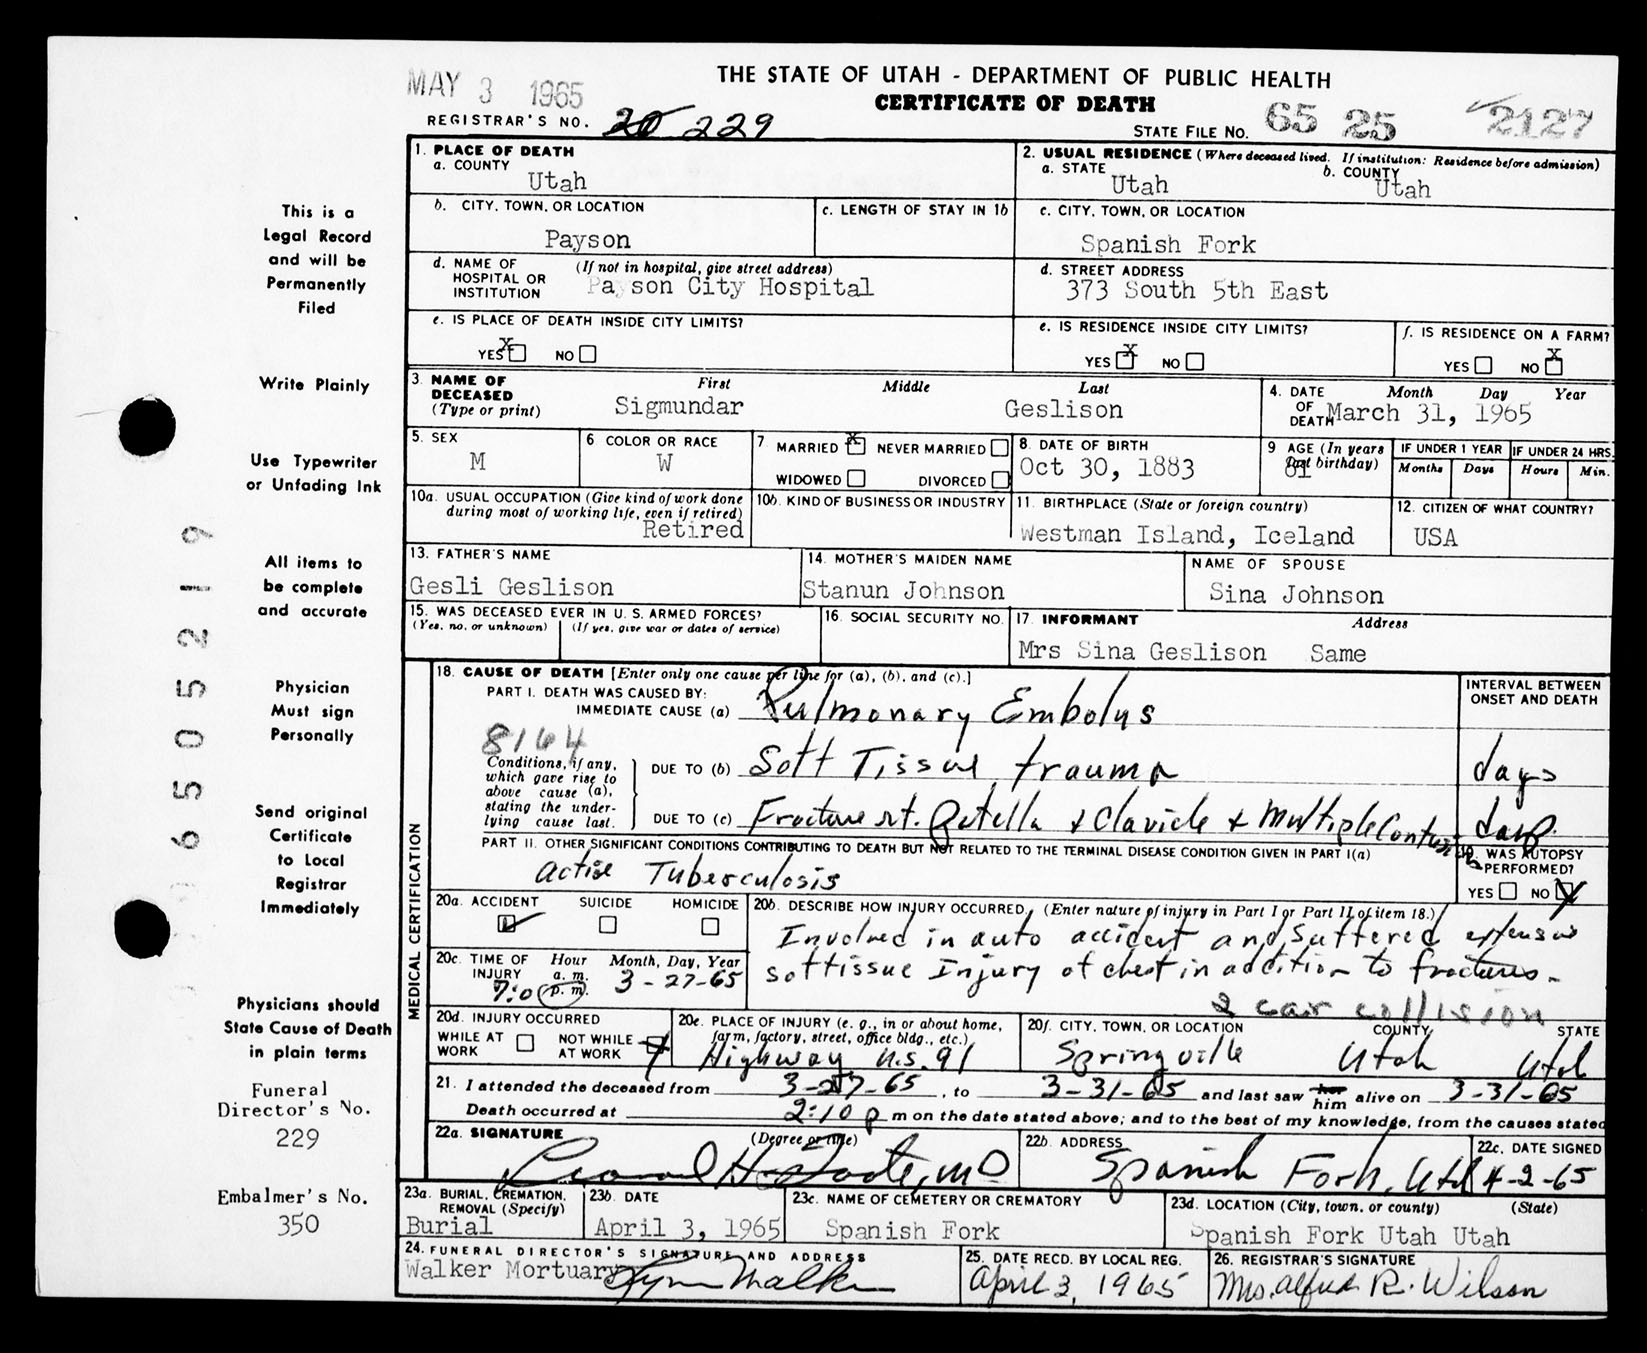 THE STATE OF UTAH - DEPARTMENT OF PUBLIC HEALTH
CERTIFICATE OF DEATH
MAY 3 1965
REGISTRAR'S NO. 20 229
STATE FILE NO. 65 25 2127
This is a
Legal Record
and will be
Permanently
Filed
Write Plainly
Use Typewriter
or Unfading Ink
All items to
be complete
and accurate
Physician
Must sign
Personally
Send original
Certificate
to Local
Registrar
Immediately
Physicians should
State Cause of Death
in plain terms
Funeral
Director's No.
229
Embalmer's No.
350
36505219
1. PLACE OF DEATH
a. COUNTY
Utah
2. USUAL RESIDENCE (Where deceased lived. If institution: Residence before admission)
a. STATE
Utah
b. COUNTY
Utah
b. CITY, TOWN, OR LOCATION
Payson
c. LENGTH OF STAY IN 1b
c. CITY, TOWN, OR LOCATION
Spanish Fork
d. NAME OF HOSPITAL OR INSTITUTION
(If not in hospital, give street address)
Payson City Hospital
d. STREET ADDRESS
373 South 5th East
e. IS PLACE OF DEATH INSIDE CITY LIMITS?
YES X NO
e. IS RESIDENCE INSIDE CITY LIMITS?
YES X NO
f. IS RESIDENCE ON A FARM?
YES NO X
3. NAME OF DECEASED
(Type or print)
First Middle Last
Sigmundar Geslison
4. DATE OF DEATH
Month Day Year
March 31, 1965
5. SEX
M
6 COLOR OR RACE
W
7 MARRIED X NEVER MARRIED
WIDOWED DIVORCED
8. DATE OF BIRTH
Oct 30, 1883
9 AGE (In years last birthday)
81
IF UNDER 1 YEAR
Months Days
IF UNDER 24 HRS.
Hours Min.
10a. USUAL OCCUPATION (Give kind of work done during most of working life, even if retired)
Retired
10b. KIND OF BUSINESS OR INDUSTRY
11. BIRTHPLACE (State or foreign country)
Westman Island, Iceland
12. CITIZEN OF WHAT COUNTRY?
USA
13. FATHER'S NAME
Gesli Geslison
14. MOTHER'S MAIDEN NAME
Stanun Johnson
NAME OF SPOUSE
Sina Johnson
15. WAS DECEASED EVER IN U. S. ARMED FORCES?
(Yes, no, or unknown) (If yes, give war or dates of service)
16. SOCIAL SECURITY NO.
17. INFORMANT Address
Mrs Sina Geslison Same
MEDICAL CERTIFICATION
18. CAUSE OF DEATH [Enter only one cause per line for (a), (b), and (c).]
INTERVAL BETWEEN ONSET AND DEATH
PART I. DEATH WAS CAUSED BY:
IMMEDIATE CAUSE (a) Pulmonary Embolus
8164
Conditions, if any, which gave rise to above cause (a), stating the underlying cause last.
DUE TO (b) Soft Tissue trauma days
DUE TO (c) Fracture rt. Patella & Clavicle & Multiple Contusions days
PART II. OTHER SIGNIFICANT CONDITIONS CONTRIBUTING TO DEATH BUT NOT RELATED TO THE TERMINAL DISEASE CONDITION GIVEN IN PART I(a)
Active Tuberculosis
19. WAS AUTOPSY PERFORMED?
YES NO X
20a. ACCIDENT SUICIDE HOMICIDE
20b. DESCRIBE HOW INJURY OCCURRED. (Enter nature of injury in Part I or Part II of item 18.)
Involved in auto accident and suffered extensive
soft tissue Injury of chest in addition to fractures.
2 car collision
20c. TIME OF INJURY
Hour Month, Day, Year
a. m.
7:0 p. m. 3-27-65
20d. INJURY OCCURRED
WHILE AT WORK NOT WHILE AT WORK
20e. PLACE OF INJURY (e. g., in or about home, farm, factory, street, office bldg., etc.)
Highway U.S. 91
20f. CITY, TOWN, OR LOCATION COUNTY STATE
Springville Utah Utah
21. I attended the deceased from 3-27-65, to 3-31-65 and last saw her him alive on 3-31-65
Death occurred at 2:10 p m on the date stated above; and to the best of my knowledge, from the causes stated
22a. SIGNATURE (Degree or title)
MD
22b. ADDRESS
Spanish Fork, Utah
22c. DATE SIGNED
4-2-65
23a. BURIAL, CREMATION, REMOVAL (Specify)
Burial
23b. DATE
April 3, 1965
23c. NAME OF CEMETERY OR CREMATORY
Spanish Fork
23d. LOCATION (City, town, or county) (State)
Spanish Fork Utah Utah
24. FUNERAL DIRECTOR'S SIGNATURE AND ADDRESS
Walker Mortuary Lynn Walker
25. DATE RECD. BY LOCAL REG.
April 3, 1965
26. REGISTRAR'S SIGNATURE
Mrs. Alfred R. Wilson